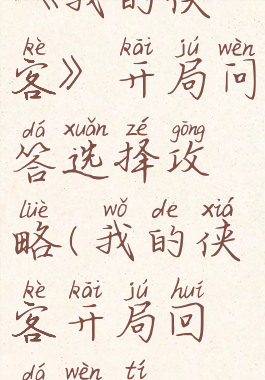 《我的侠
kè kāi jú wèn
客》 开局问
dá xuǎn zé gōng
答选择攻
lüè wǒ de xiá
略(我的侠
kè kāi jú huí
客开局回
dá wèn tí